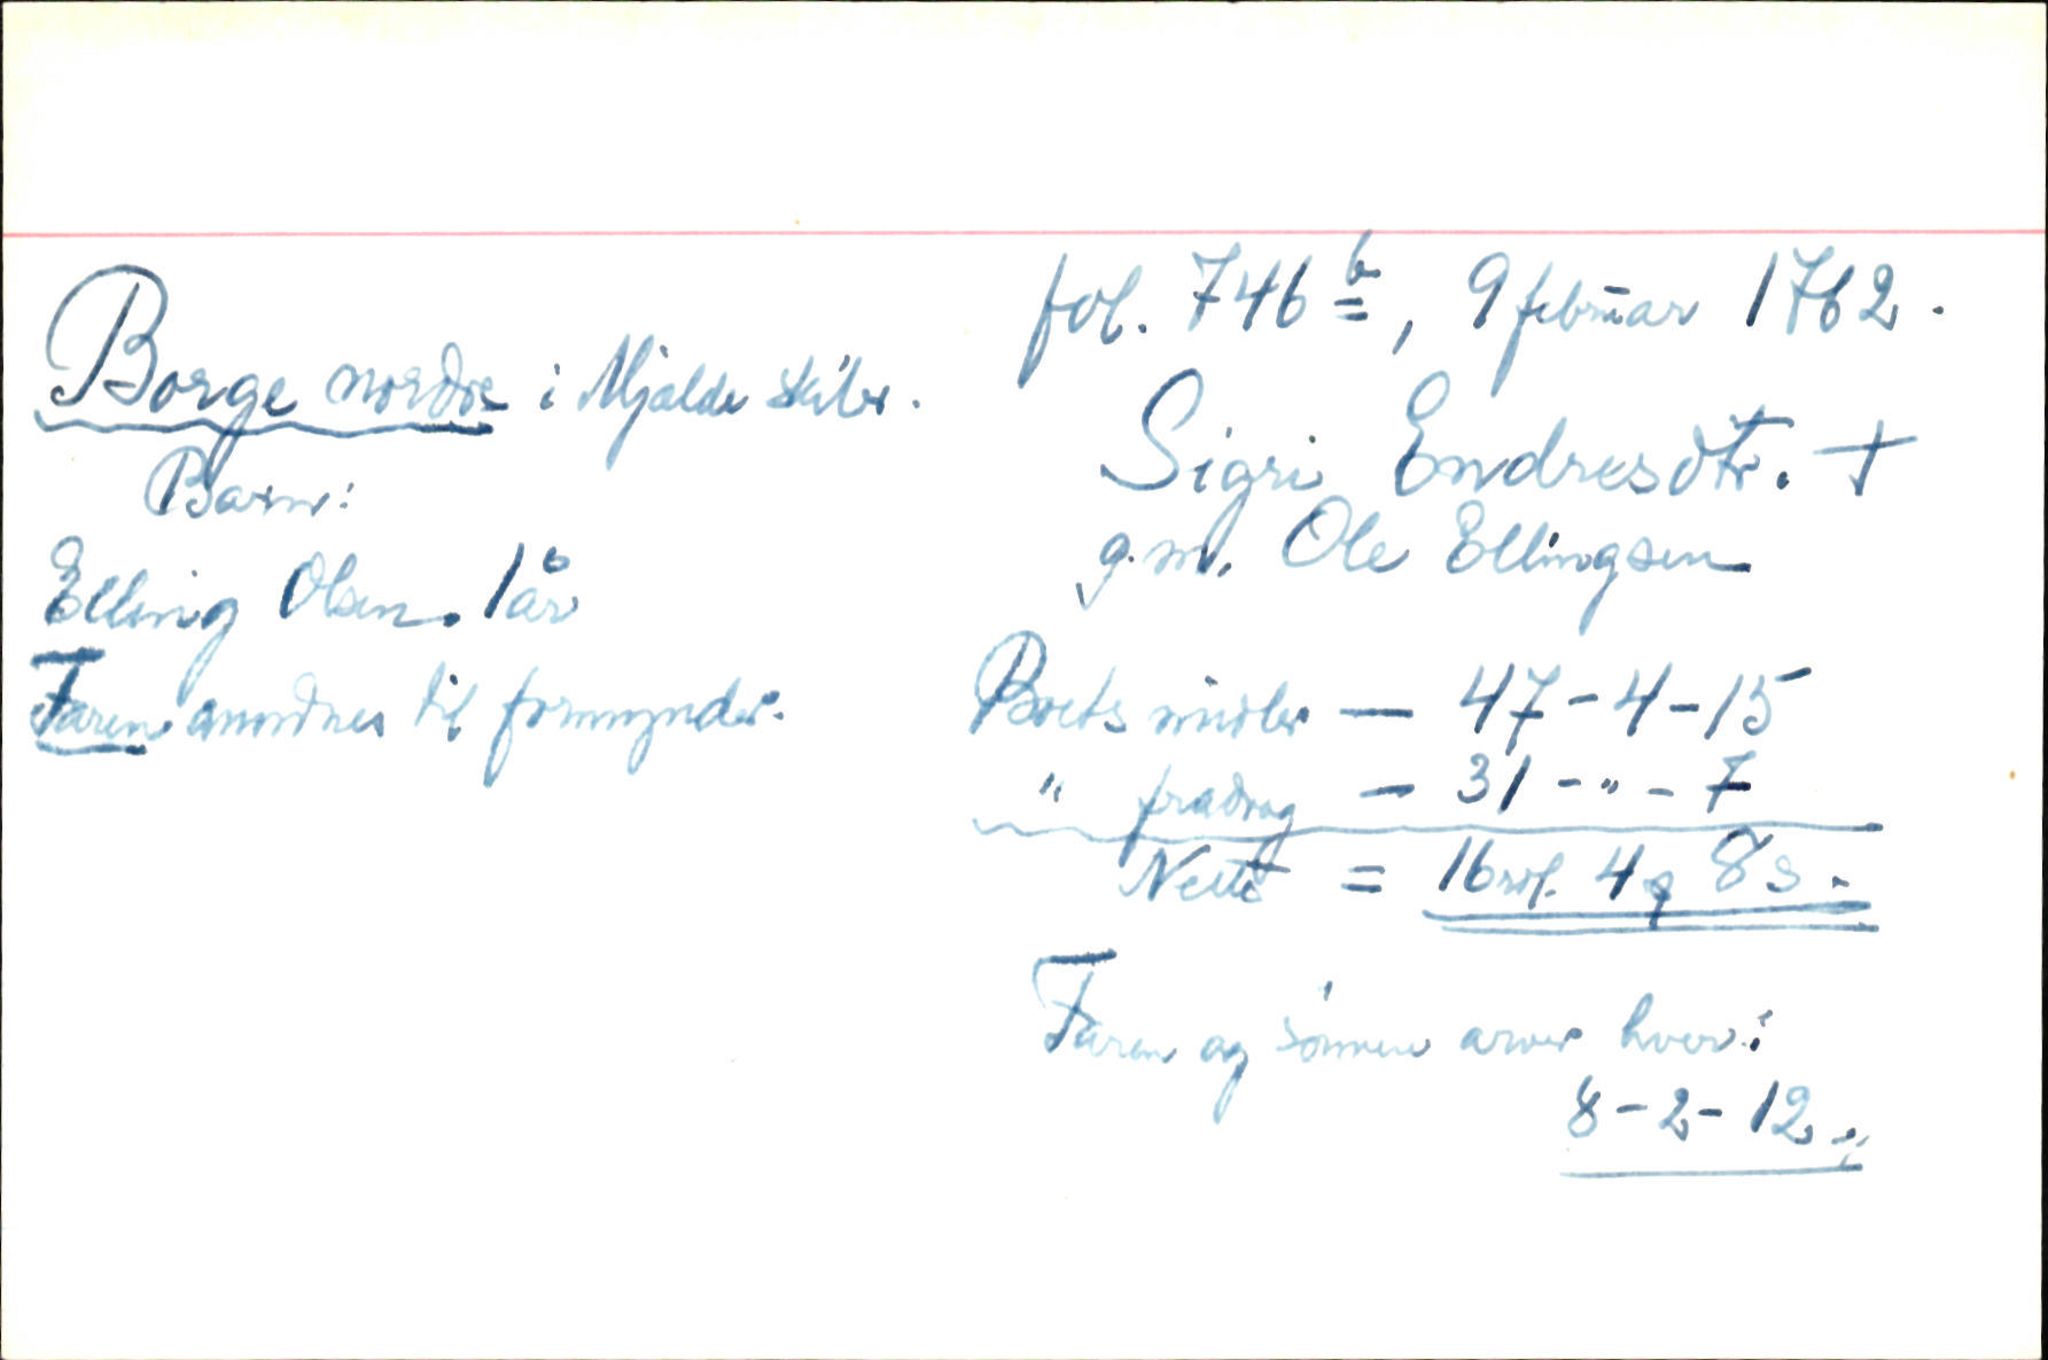 fol. 746 b, 9 februar 1762.
Borge nordre i Mjelde skibr.
Sigri Endresdtr. +
g.m. Ole Ellingsen
Barn:
Elling Olsen. 1 år
Faren anordnes til formynder.
Boets midler — 47-4-15
" fradrag — 31 - " - 7
Netto = 16 rdl. 4 q 8 s.
Faren og sønnen arver hver:
8-2-12 "